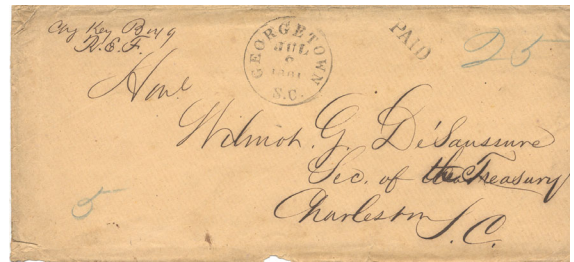 Chg Key Box 9
R.E.F.
GEORGETOWN
JUL
S.C.
PAID
25
Honl
Wilmot. G. DeSaussure
Sec. of the Treasury
Charleston
S.C.
5